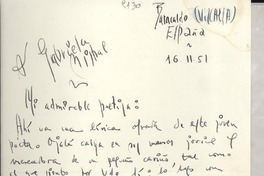 Baracaldo (Vizcaya)
España
16.11.51
A Gabriela
Mistral
Mi admirable poetisa:
Ahí va una lírica ofrenda de este joven
poeta. Ojalá caiga en sus manos jovial y
mensajera de un pequeño cariño, tal como
el que siento por Vd. lo